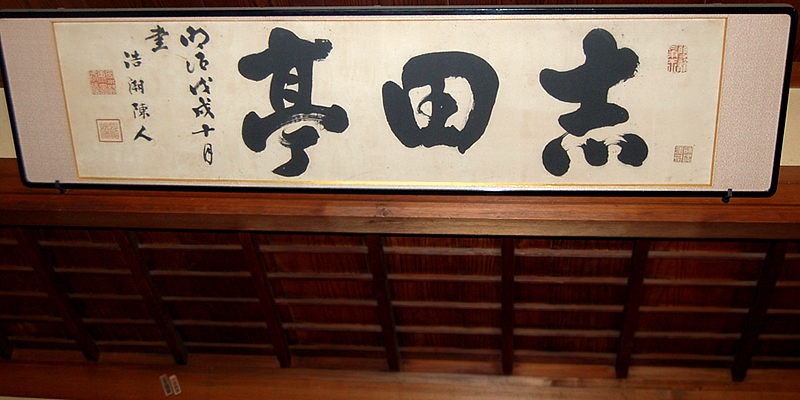 志田亭
明治戊戌十月
浩湖陳人
書